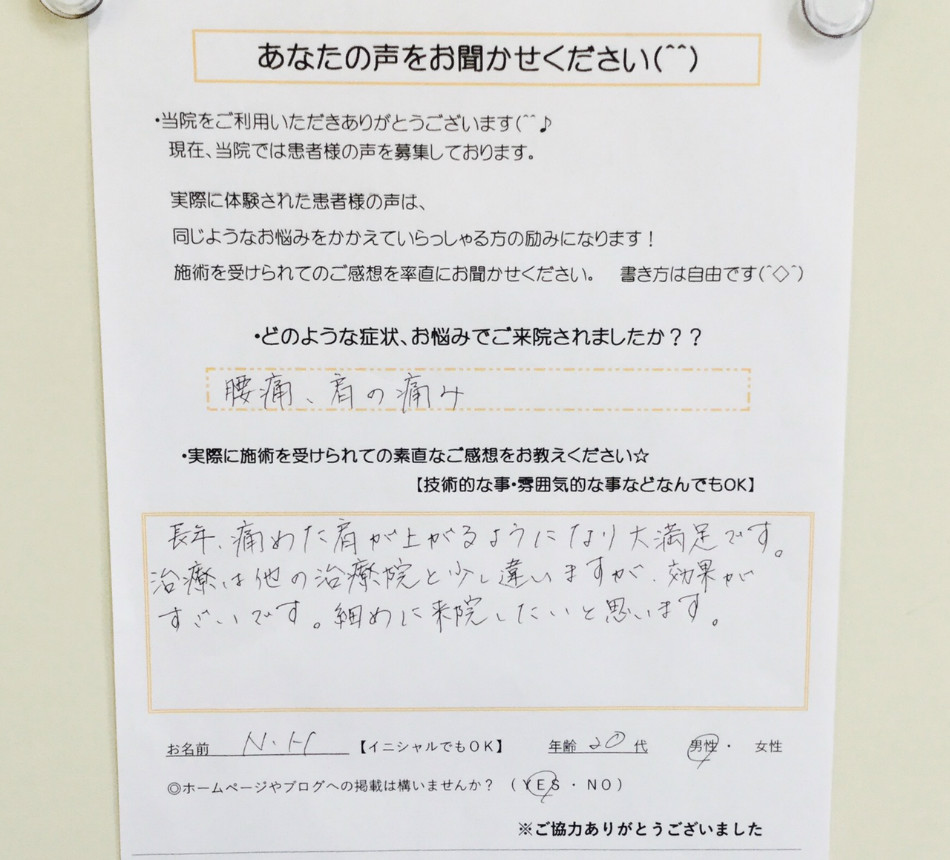 あなたの声をお聞かせください(^^)
・当院をご利用いただきありがとうございます(^^♪
現在、当院では患者様の声を募集しております。
実際に体験された患者様の声は、
同じようなお悩みをかかえていらっしゃる方の励みになります！
施術を受けられてのご感想を率直にお聞かせください。 書き方は自由です(^◇^)
・どのような症状、お悩みでご来院されましたか？？
腰痛、肩の痛み
・実際に施術を受けられての素直なご感想をお教えください☆
【技術的な事・雰囲気的な事などなんでもOK】
長年、痛めた肩が上がるようになり大満足です。
治療は他の治療院と少し違いますが、効果が
すごいです。細めに来院したいと思います。
お名前 N.H 【イニシャルでもOK】 年齢 20 代 男性 ・ 女性
◎ホームページやブログへの掲載は構いませんか？ （YES ・ NO）
※ご協力ありがとうございました